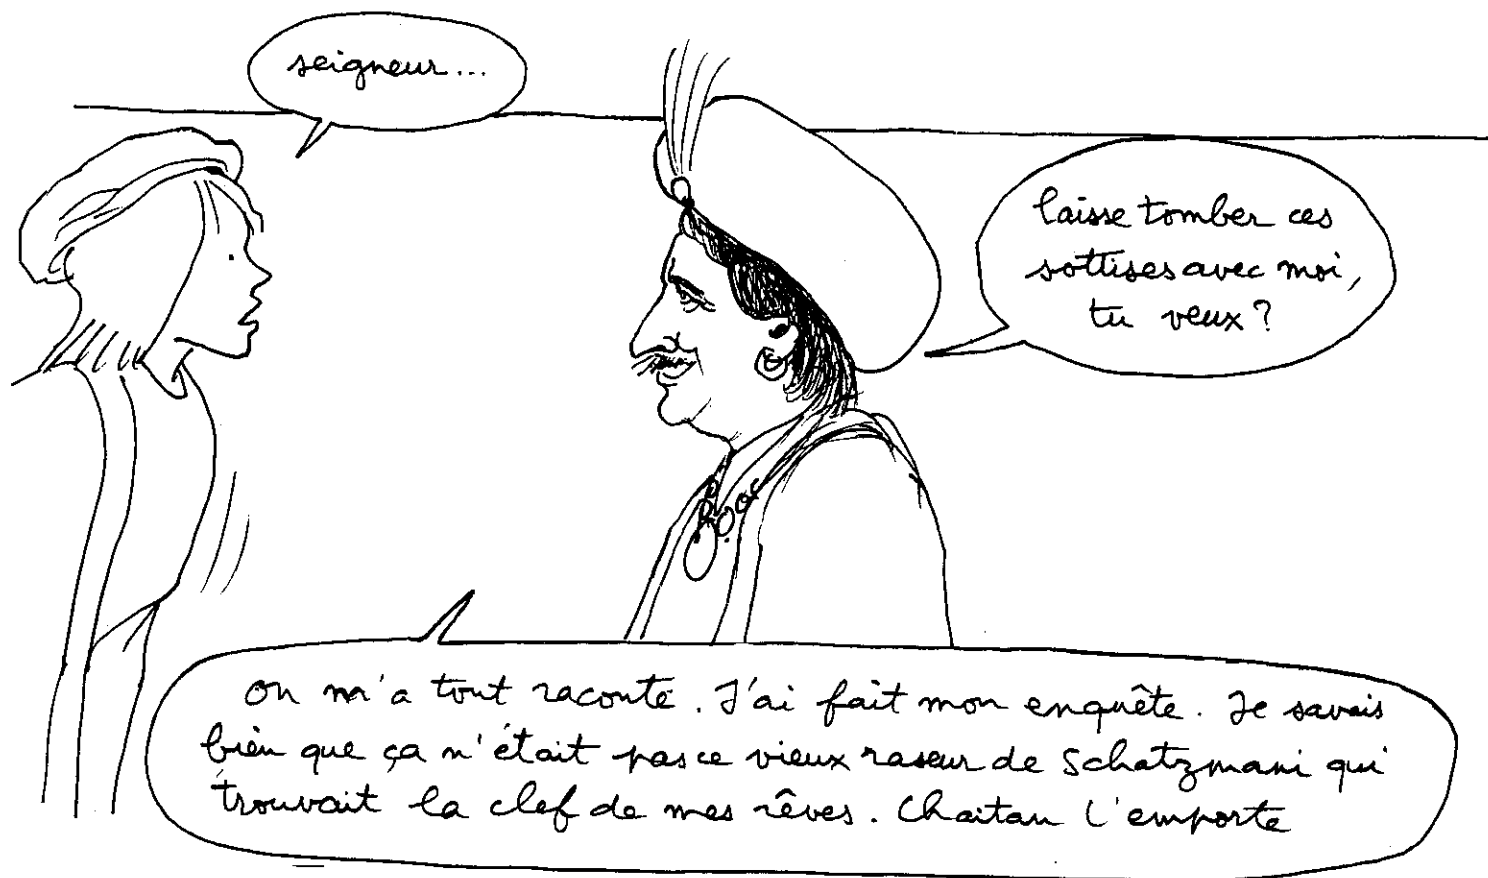 seigneur...
laisse tomber ces
sottises avec moi,
tu veux ?
on m'a tout raconté. J'ai fait mon enquête. Je savais
bien que ça n'était pas ce vieux raseur de Schatzmani qui
trouvait la clef de mes rêves. Chaitan l'emporte